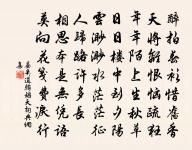 醉拍春衫惜舊香
天將離恨惱疏狂
年年陌上生秋草
日日樓中到夕陽
雲渺渺水茫茫征
人歸路許多長
相思本是無憑語
莫向花箋費淚行
晏幾道鷓鴣天詞